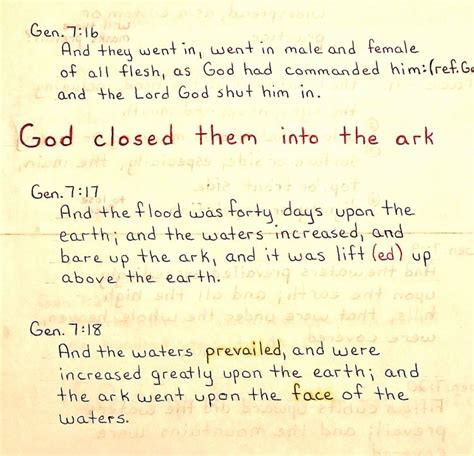 Gen. 7:16
And they went in, went in male and female
of all flesh, as God had commanded him:(ref.Ge
and the Lord God shut him in.
God closed them into the ark
Gen. 7:17
And the flood was forty days upon the
earth; and the waters increased, and
bare up the ark, and it was lift (ed) up
above the earth.
Gen. 7:18
And the waters prevailed, and were
increased greatly upon the earth; and
the ark went upon the face of the
waters.